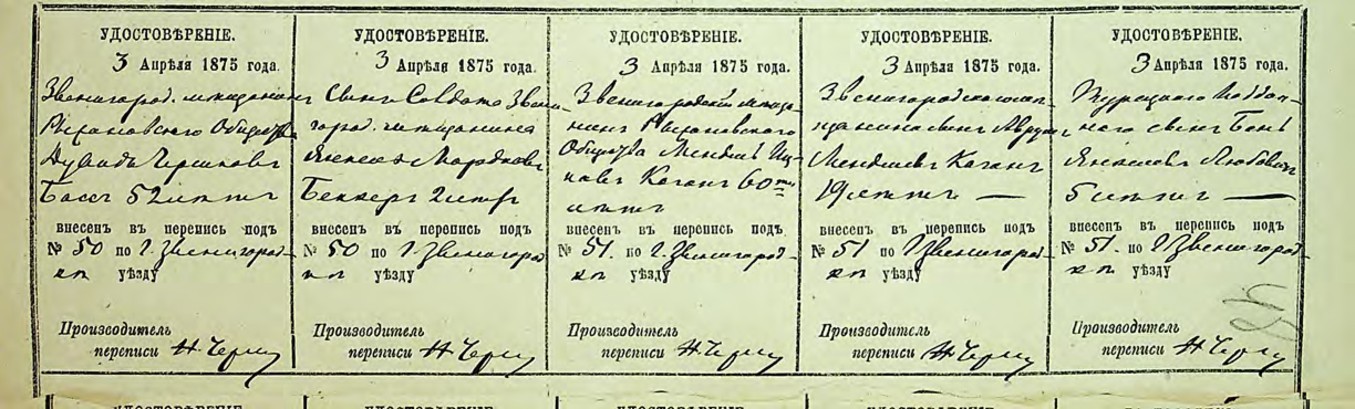 УДОСТОВѢРЕНІЕ.
3 Апрѣля 1875 года.
Звенигород. мѣщанинъ
Рыжановскаго Общества
Дувидъ Гершковъ
Бассъ 52 лѣтъ
внесенъ въ перепись подъ
№ 50 по г. Звенигород-
кѣ уѣзду
Производитель
переписи
УДОСТОВѢРЕНІЕ.
3 Апрѣля 1875 года.
Сынъ Солдата Звени-
город. мѣщанина
Мордковъ
Беккеръ 2 лѣтъ
внесенъ въ перепись подъ
№ 50 по г. Звенигород
кѣ уѣзду
Производитель
переписи
УДОСТОВѢРЕНІЕ.
3 Апрѣля 1875 года.
Звенигородскій мѣща-
нинъ Рыжановскаго
Общества Мендель Иц-
ковъ Каганъ 60ти
лѣтъ
внесенъ въ перепись подъ
№ 51. по г. Звенигород-
кѣ уѣзду
Производитель
переписи
УДОСТОВѢРЕНІЕ.
3 Апрѣля 1875 года.
Звенигородскаго мѣ-
щанина сынъ
Менделевъ Каганъ
19 лѣтъ —
внесенъ въ перепись подъ
№ 51 по г. Звенигород-
кѣ уѣзду
Производитель
переписи
УДОСТОВѢРЕНІЕ.
3 Апрѣля 1875 года.
Турецкаго Поддан-
наго сынъ Бень
Янкелевъ
5 лѣтъ —
внесенъ въ перепись подъ
№ 51. по г. Звенигород-
кѣ уѣзду
Производитель
переписи